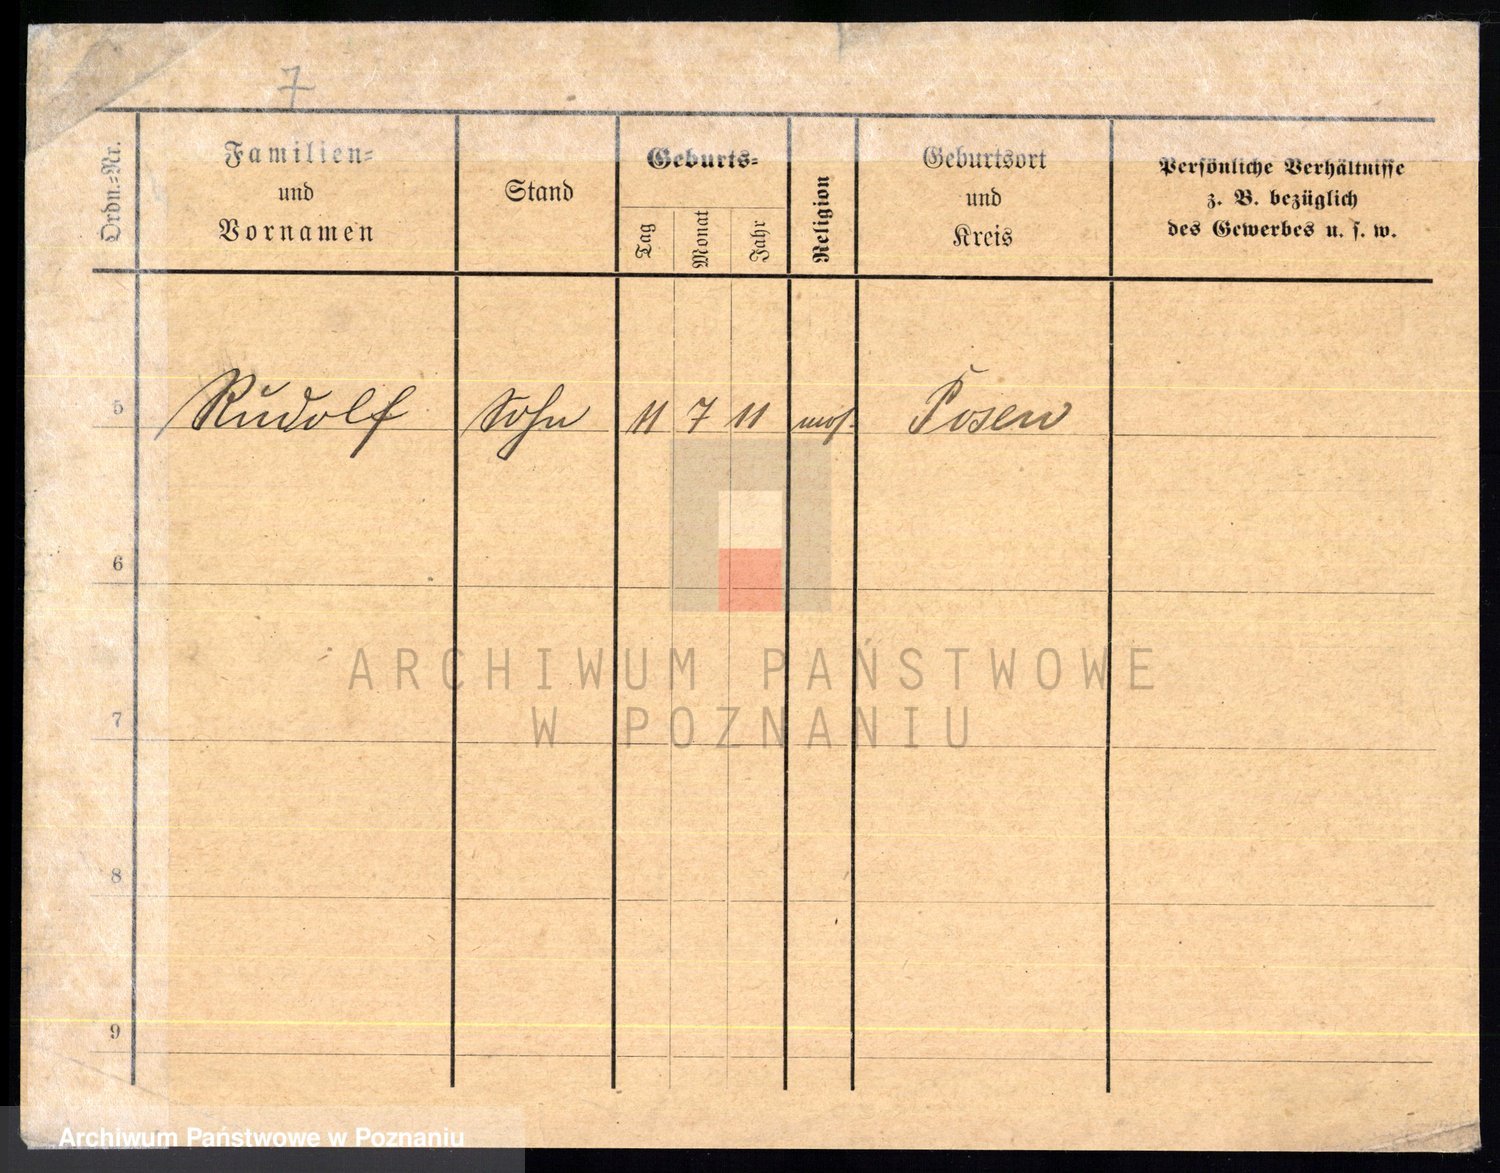 7
Ordn.-Nr.
Familien-
und
Vornamen
Stand
Geburts-
Tag
Monat
Jahr
Religion
Geburtsort
und
Kreis
Persönliche Verhältnisse
z. B. bezüglich
des Gewerbes u. s. w.
5 Rudolf Sohn 11 7 11 mos. Posen
6
7
8
9
ARCHIWUM PAŃSTWOWE
W POZNANIU
Archiwum Państwowe w Poznaniu